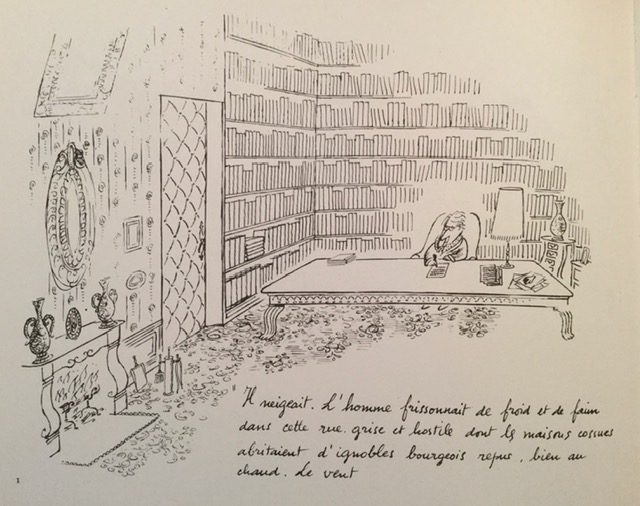 " Il neigeait. L'homme frissonnait de froid et de faim
dans cette rue grise et hostile dont les maisons cossues
abritaient d'ignobles bourgeois repus, bien au
chaud. Le vent
1